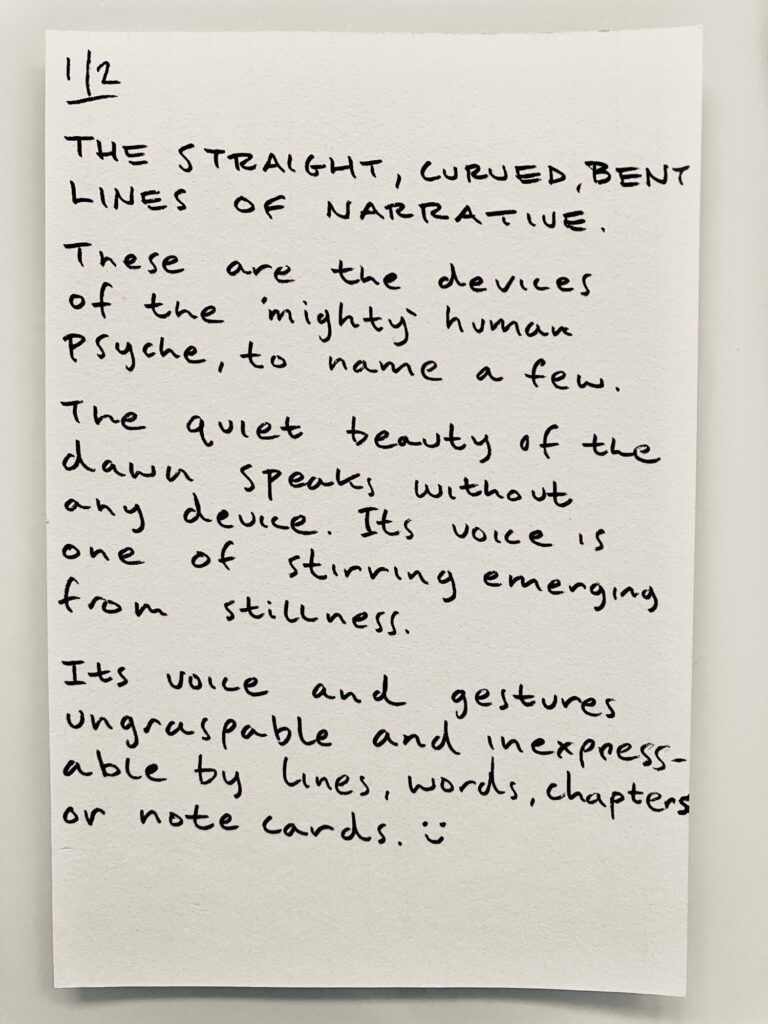 1/2
THE STRAIGHT, CURVED, BENT
LINES OF NARRATIVE.
These are the devices
of the 'mighty' human
psyche, to name a few.
The quiet beauty of the
dawn speaks without
any device. Its voice is
one of stirring emerging
from stillness.
Its voice and gestures
ungraspable and inexpress-
able by lines, words, chapters
or note cards. :)